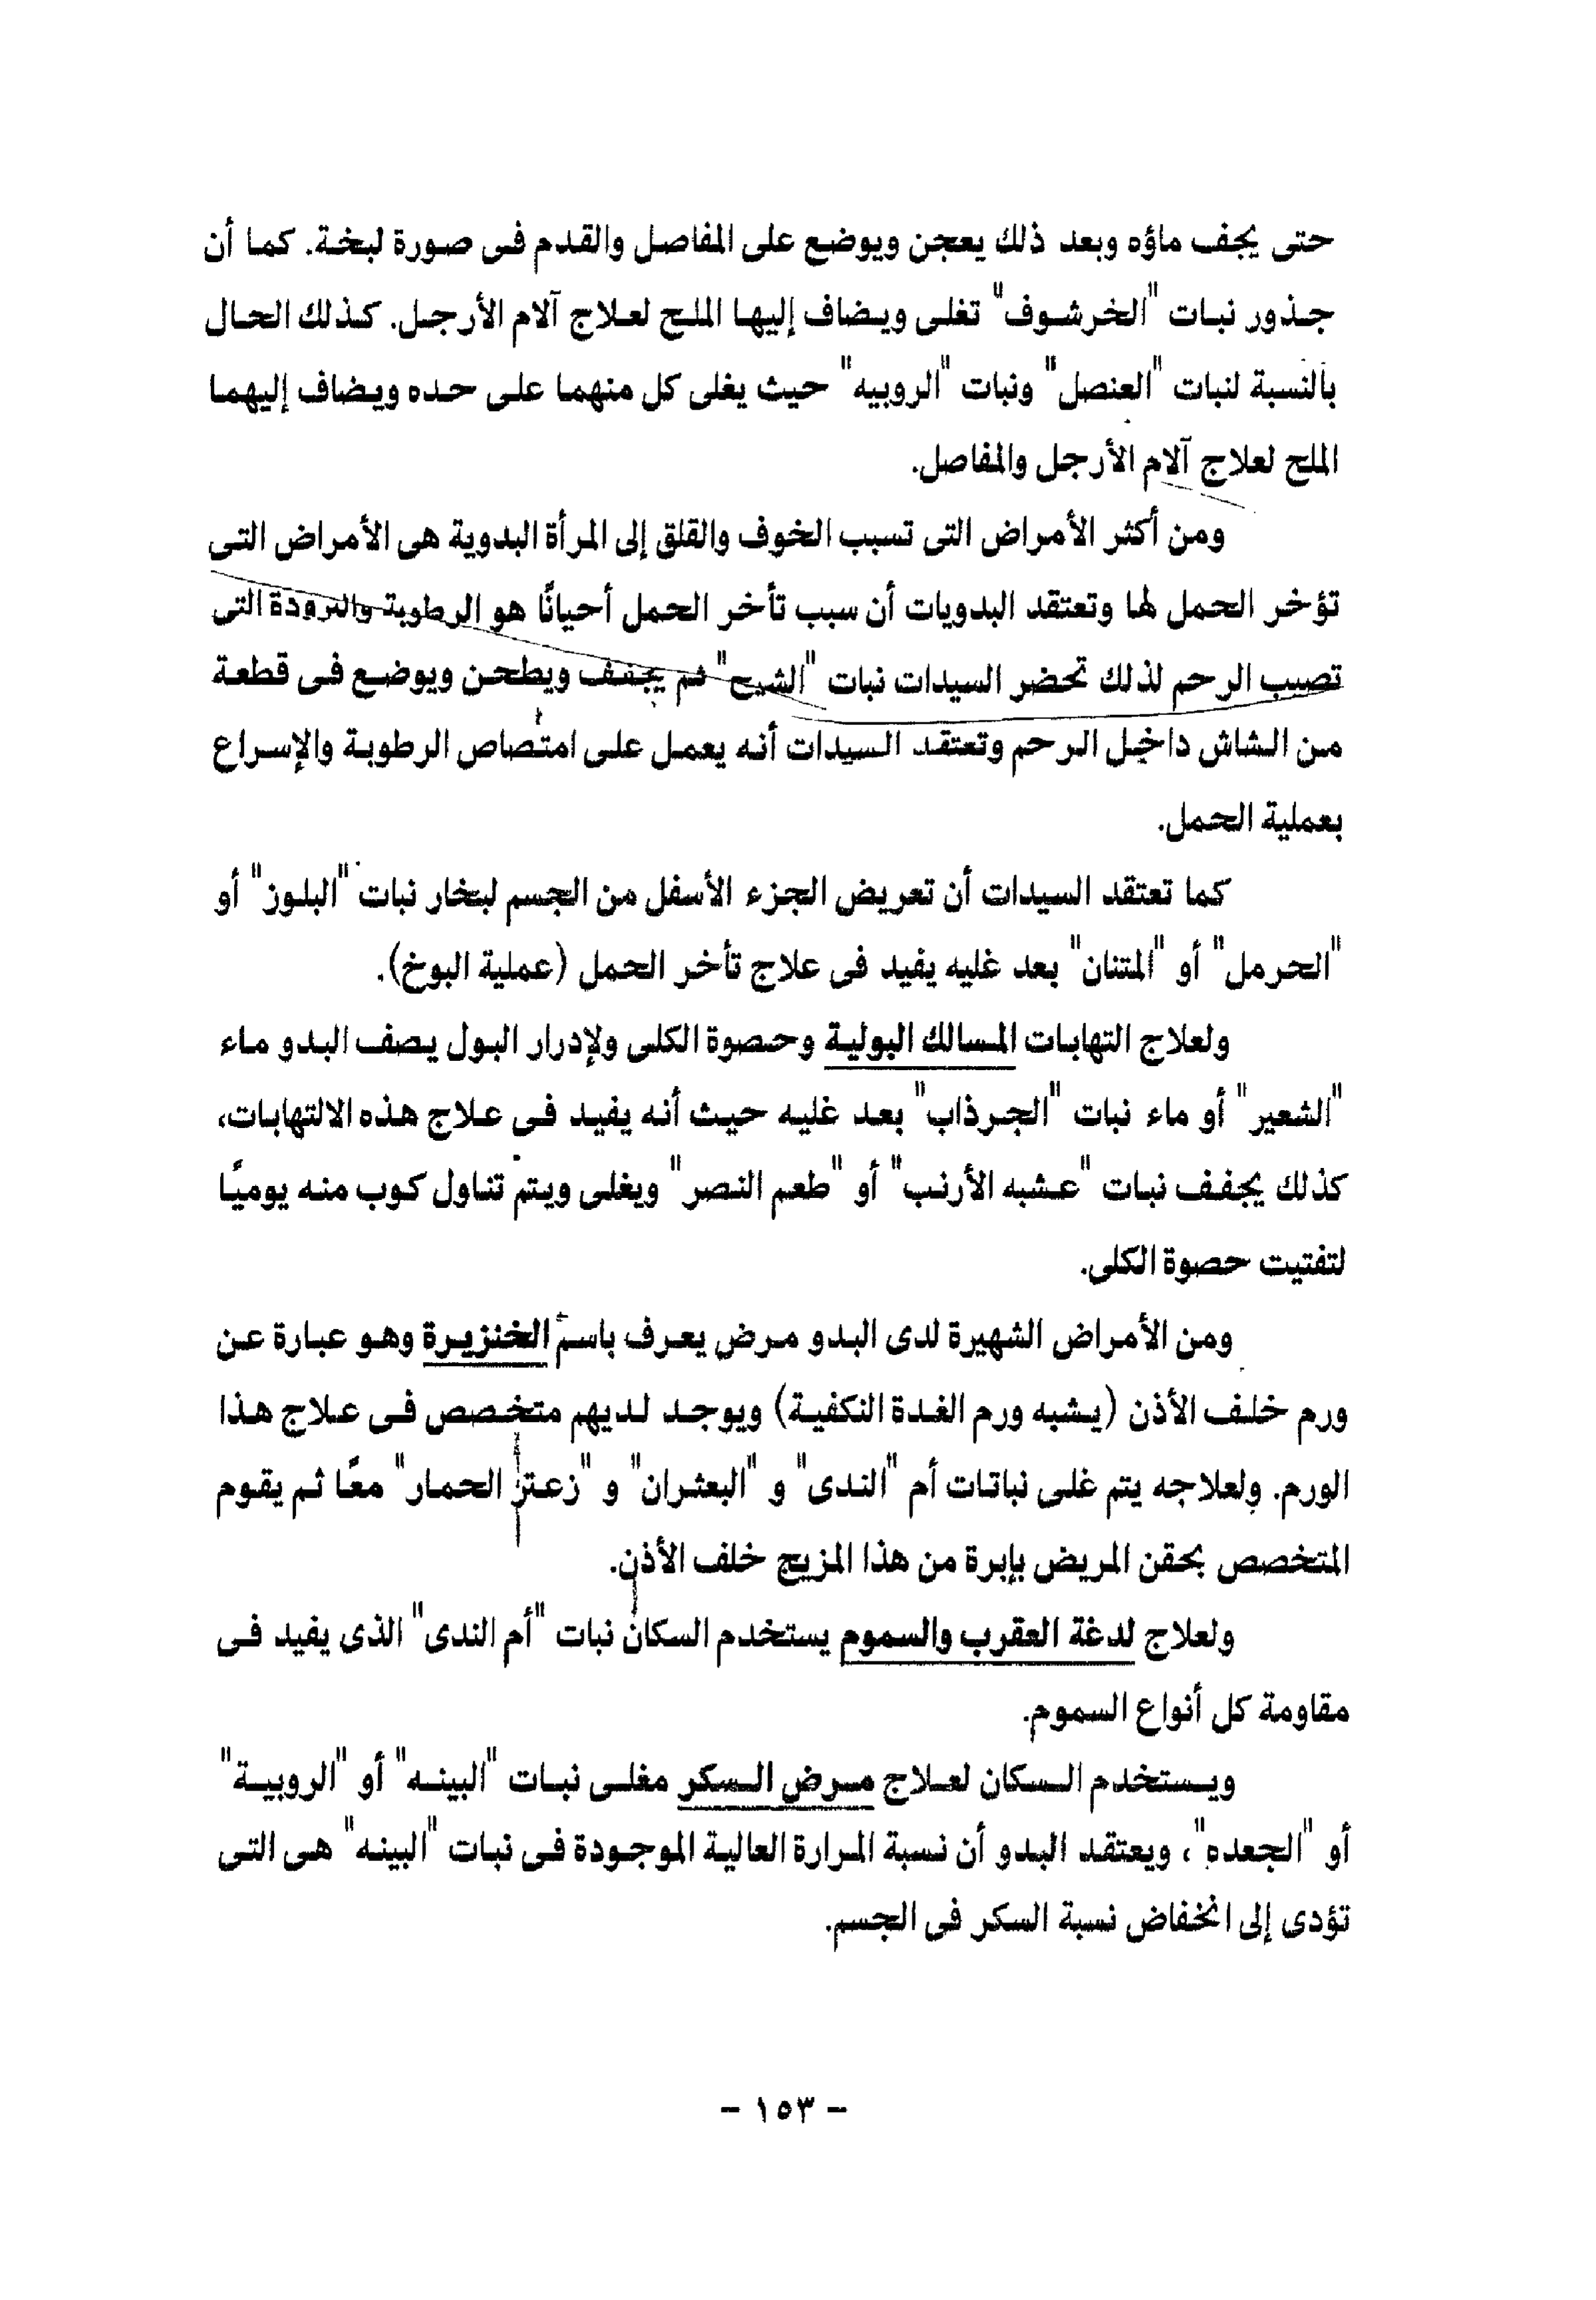 حتى يجفف ماؤه وبعد ذلك يعجن ويوضع على المفاصل والقدم فى صورة لبخة. كما أن
جذور نبات "الخرشوف" تغلى ويضاف إليها الملح لعلاج آلام الأرجل. كذلك الحال
بالنسبة لنبات "العنصل" ونبات "الروبيه" حيث يغلى كل منهما على حده ويضاف إليهما
الملح لعلاج آلام الأرجل والمفاصل.
ومن أكثر الأمراض التى تسبب الخوف والقلق إلى المرأة البدوية هى الأمراض التى
تؤخر الحمل لها وتعتقد البدويات أن سبب تأخر الحمل أحيانًا هو الرطوبة والبرودة التى
تصيب الرحم لذلك تحضر السيدات نبات "الشيح" ثم يجفف ويطحن ويوضع فى قطعة
من الشاش داخل الرحم وتعتقد السيدات أنه يعمل على امتصاص الرطوبة والإسراع
بعملية الحمل.
كما تعتقد السيدات أن تعريض الجزء الأسفل من الجسم لبخار نبات "البلوز" أو
"الحرمل" أو "المتنان" بعد غليه يفيد فى علاج تأخر الحمل (عملية البوخ).
ولعلاج التهابات المسالك البولية وحصوة الكلى ولإدرار البول يصف البدو ماء
"الشعير" أو ماء نبات "الجرذاب" بعد غليه حيث أنه يفيد فى علاج هذه الالتهابات،
كذلك يجفف نبات "عشبه الأرنب" أو "طعم النصر" ويغلى ويتم تناول كوب منه يوميًا
لتفتيت حصوة الكلى.
ومن الأمراض الشهيرة لدى البدو مرض يعرف باسم الخنزيرة وهو عبارة عن
ورم خلف الأذن (يشبه ورم الغدة النكفية) ويوجد لديهم متخصص فى علاج هذا
الورم. ولعلاجه يتم غلى نباتات أم "الندى" و "البعثران" و "زعتر الحمار" معًا ثم يقوم
المتخصص بحقن المريض بإبرة من هذا المزيج خلف الأذن.
ولعلاج لدغة العقرب والسموم يستخدم السكان نبات "أم الندى" الذى يفيد فى
مقاومة كل أنواع السموم.
ويستخدم السكان لعلاج مرض السكر مغلى نبات "البينه" أو "الروبية"
أو "الجعده"، ويعتقد البدو أن نسبة المرارة العالية الموجودة فى نبات "البينه" هى التى
تؤدى إلى انخفاض نسبة السكر فى الجسم.
- ١٥٣ -